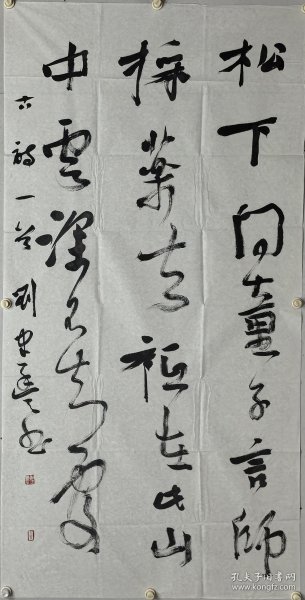 松下問童子言師
採藥去祗在此山
中雲深不知處
古詩一首劉书
孔夫子旧书网
www.kongfz.com